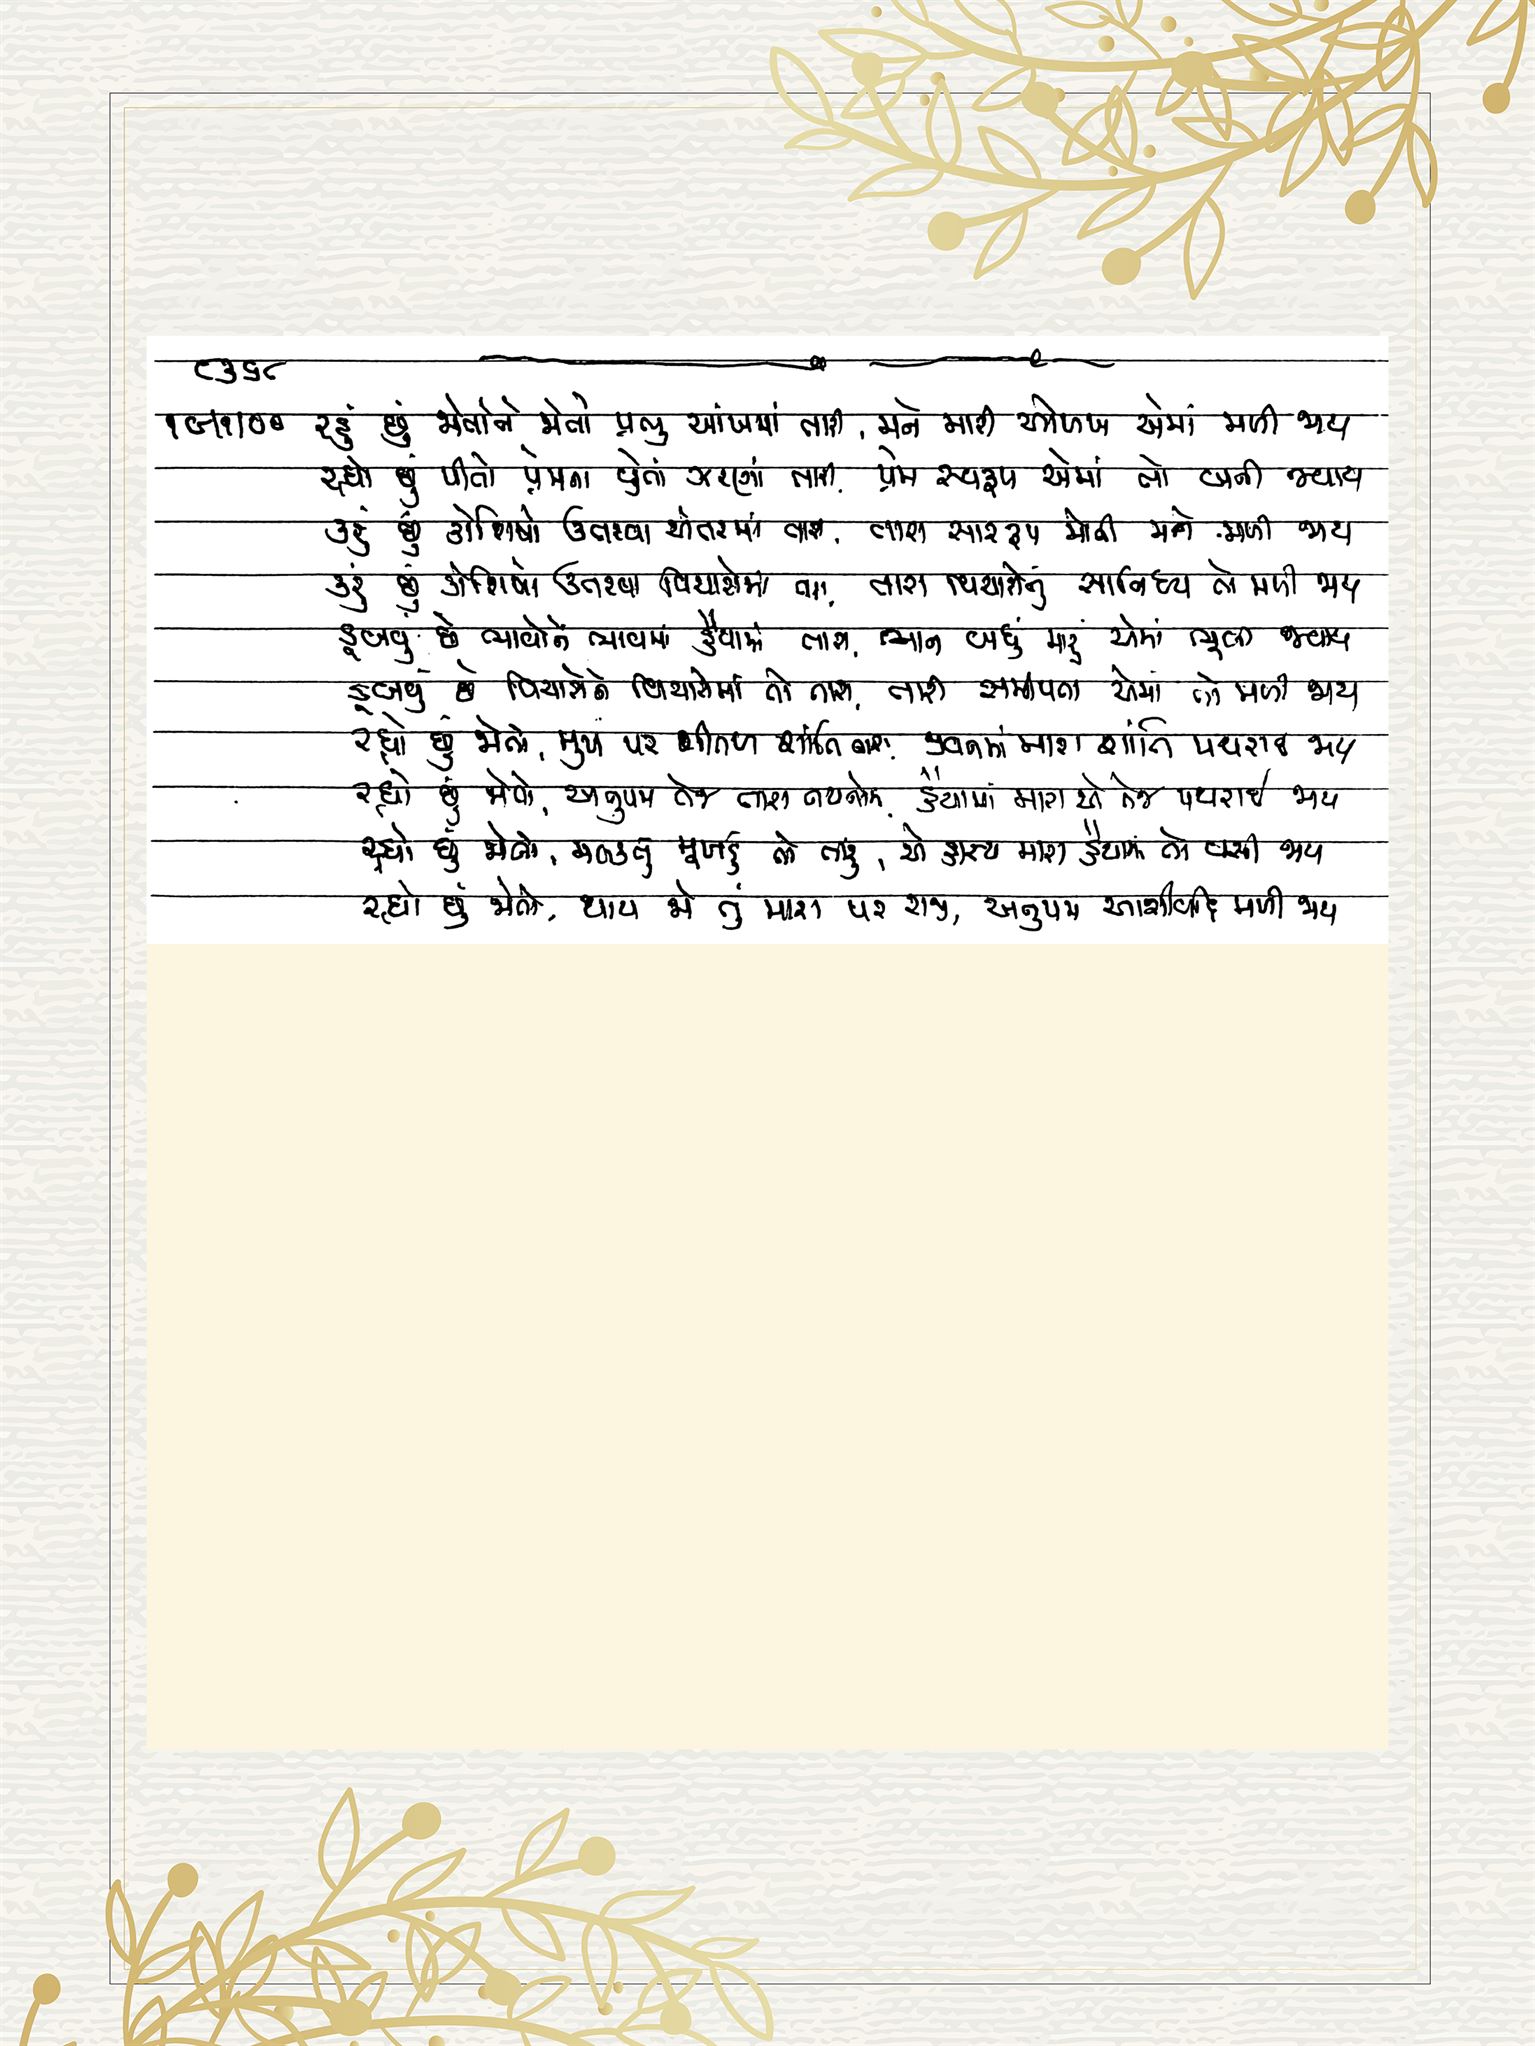 ૮૩૬૮
રહું છું જોતોને જોતો પ્રભુ આંખમાં તારી, મને મારી ઓળખ એમાં મળી જાય
રહ્યો છું પીતો પ્રેમના વ્હેતાં ઝરણાં તારી, પ્રેમ સ્વરૂપ એમાં તો બની જવાય
કરું છું કોશિષો ઉતરવા અંતરમાં તારા, તારા સારરૂપ મોતી મને મળી જાય
કરું છું કોશિષો ઉતરવા વિચારોમાં તારા, તારા વિચારોનું સાનિધ્ય તો મળી જાય
ડૂબવું છે ભાવોને ભાવમાં હૈયામાં તારા, ભાન બધું મારું એમાં ભૂલી જવાય
ડૂબવું છે વિચારોને વિચારોમાં તો તારા, તારી સમીપતા એમાં તો મળી જાય
રહ્યો છું જોતો, મુખ પર શીતળ શાંતિ તારા, જીવનમાં મારા શાંતિ પથરાઈ જાય
રહ્યો છું જોતો, અનુપમ તેજ તારા નયનોમાં, હૈયામાં મારા એ તેજ પથરાઈ જાય
રહ્યો છું જોતો, મલકતું મુખડું તો તારું, એ હાસ્ય મારા હૈયામાં તો વસી જાય
રહ્યો છું જોતો, થાય જો તું મારા પર રાજી, અનુપમ આશીર્વાદ મળી જાય